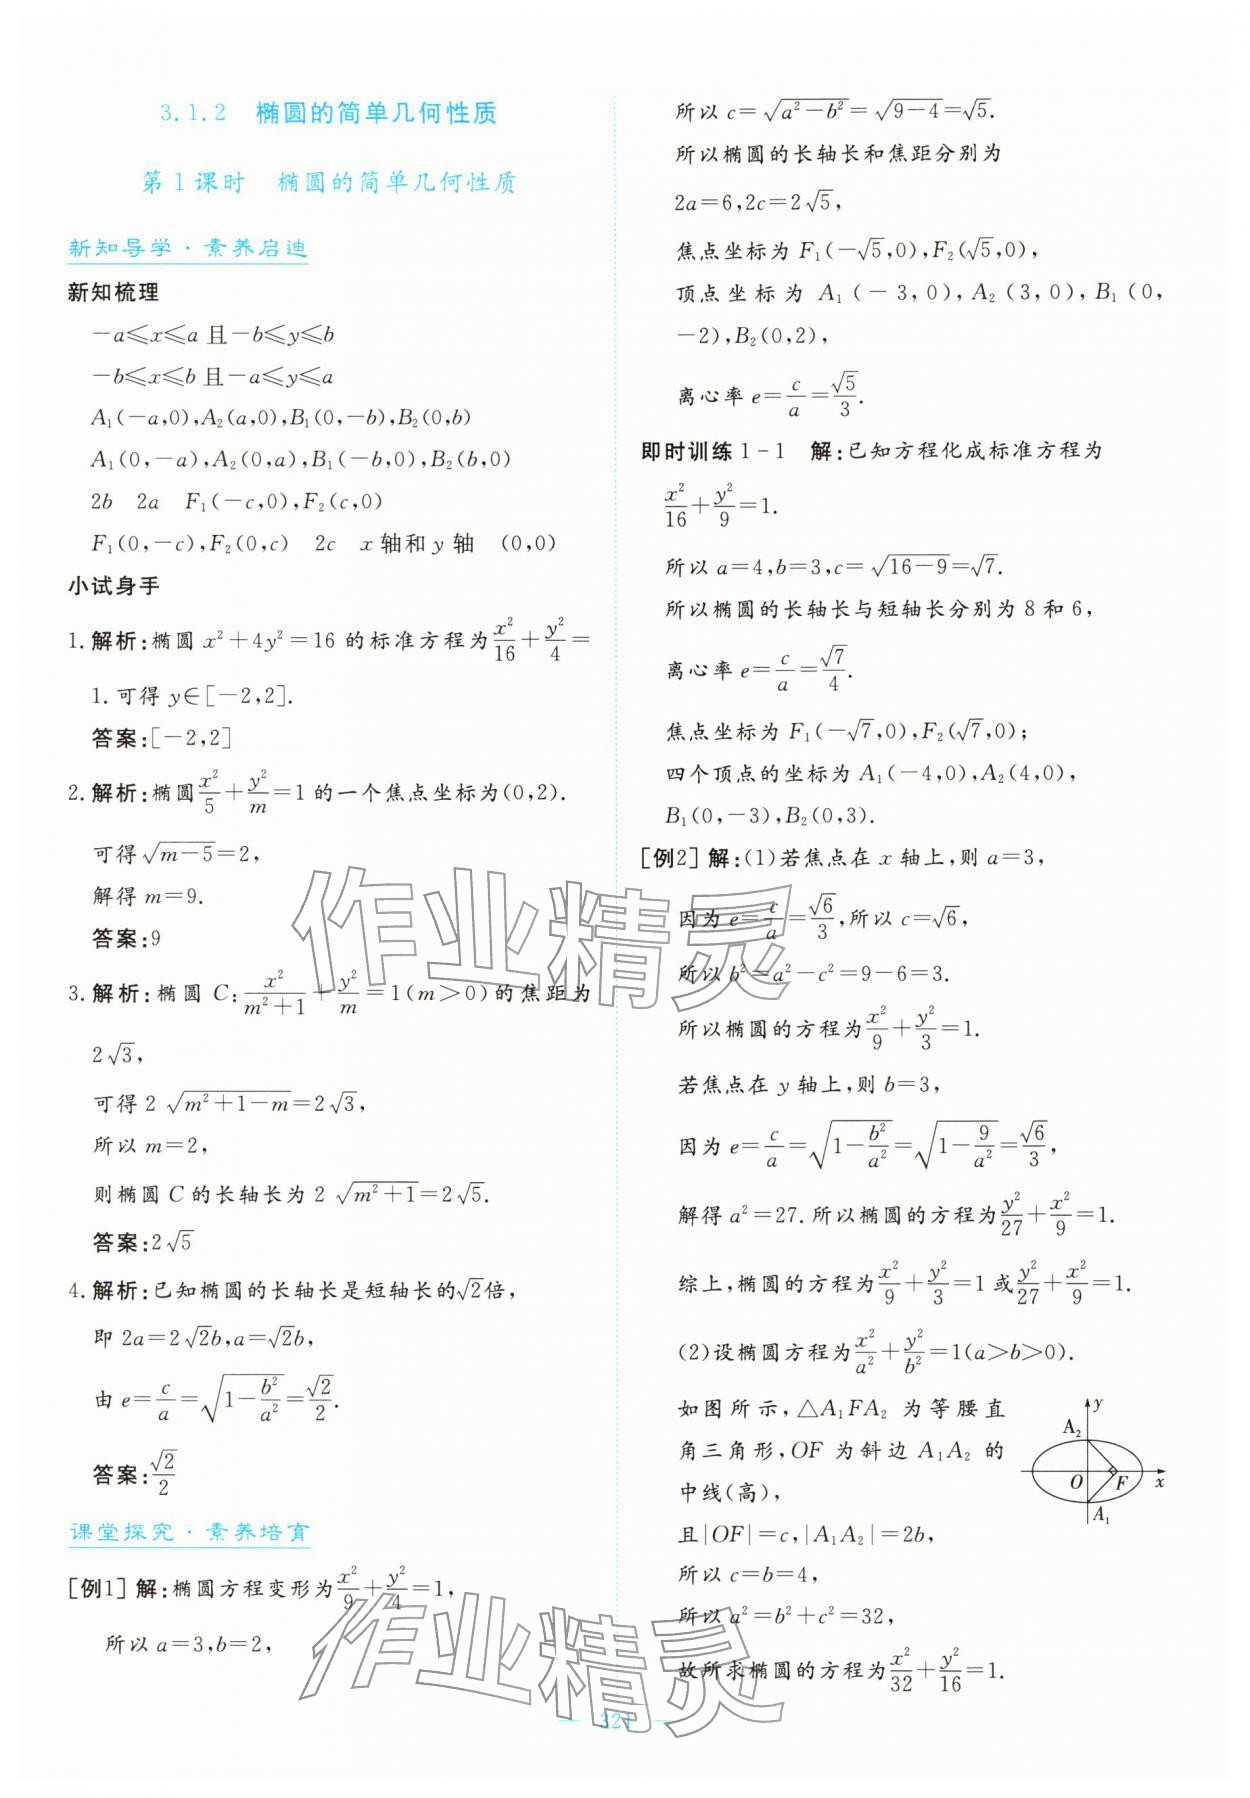 3.1.2 椭圆的简单几何性质
第1课时 椭圆的简单几何性质
新知导学·素养启迪
新知梳理
-a≤x≤a且-b≤y≤b
-b≤x≤b且-a≤y≤a
A₁(-a,0),A₂(a,0),B₁(0,-b),B₂(0,b)
A₁(0,-a),A₂(0,a),B₁(-b,0),B₂(b,0)
2b 2a F₁(-c,0),F₂(c,0)
F₁(0,-c),F₂(0,c) 2c x轴和y轴 (0,0)
小试身手
1.解析:椭圆 x²+4y²=16 的标准方程为x²/16+y²/4=
1.可得 y∈[-2,2].
答案:[-2,2]
2.解析:椭圆x²/5+y²/m=1的一个焦点坐标为(0,2).
可得√(m-5)=2,
解得 m=9.
答案:9
3.解析:椭圆 C:x²/(m²+1)+y²/m=1(m>0)的焦距为
2√3,
可得 2√(m²+1-m)=2√3,
所以 m=2,
则椭圆 C 的长轴长为 2√(m²+1)=2√5.
答案:2√5
4.解析:已知椭圆的长轴长是短轴长的√2倍,
即 2a=2√2b,a=√2b,
由 e=c/a=√(1-b²/a²)=√2/2.
答案:√2/2
课堂探究·素养培育
[例1] 解:椭圆方程变形为x²/9+y²/4=1,
所以 a=3,b=2,
所以 c=√(a²-b²)=√(9-4)=√5.
所以椭圆的长轴长和焦距分别为
2a=6,2c=2√5,
焦点坐标为 F₁(-√5,0),F₂(√5,0),
顶点坐标为 A₁(-3,0),A₂(3,0),B₁(0,
-2),B₂(0,2),
离心率 e=c/a=√5/3.
即时训练1-1 解:已知方程化成标准方程为
x²/16+y²/9=1.
所以 a=4,b=3,c=√(16-9)=√7.
所以椭圆的长轴长与短轴长分别为 8 和 6,
离心率 e=c/a=√7/4.
焦点坐标为 F₁(-√7,0),F₂(√7,0);
四个顶点的坐标为 A₁(-4,0),A₂(4,0),
B₁(0,-3),B₂(0,3).
[例2] 解:(1)若焦点在 x 轴上,则 a=3,
因为 e=c/a=√6/3,所以 c=√6,
所以 b²=a²-c²=9-6=3.
所以椭圆的方程为x²/9+y²/3=1.
若焦点在 y 轴上,则 b=3,
因为 e=c/a=√(1-b²/a²)=√(1-9/a²)=√6/3,
解得 a²=27.所以椭圆的方程为y²/27+x²/9=1.
综上,椭圆的方程为x²/9+y²/3=1 或y²/27+x²/9=1.
(2)设椭圆方程为x²/a²+y²/b²=1(a>b>0).
如图所示,△A₁FA₂ 为等腰直
角三角形,OF 为斜边 A₁A₂ 的
中线(高),
且|OF|=c,|A₁A₂|=2b,
所以 c=b=4,
所以 a²=b²+c²=32,
故所求椭圆的方程为x²/32+y²/16=1.
y
A₂
O
F
x
A₁
作业精灵
作业精灵
— 321 —